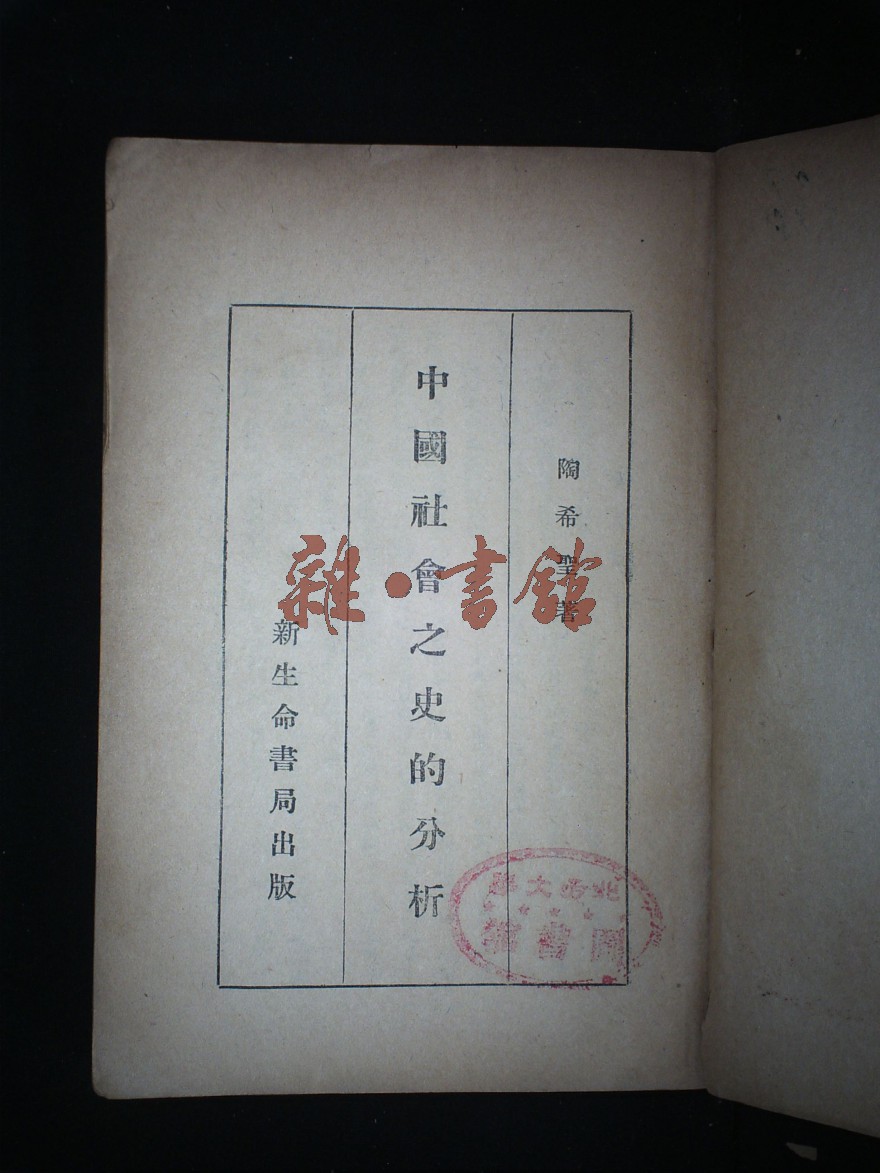 陶希聖著
中國社會之史的分析
新生命書局出版
雜·書館
大學
圖書館